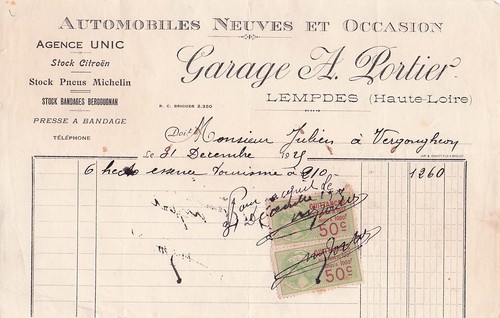 AUTOMOBILES NEUVES ET OCCASION
AGENCE UNIC
Stock Citroën
Stock Pneus Michelin
STOCK BANDAGES BERGOUGNAN
PRESSE A BANDAGE
TÉLÉPHONE
Garage A. Portier
LEMPDES (Haute-Loire)
R. C. BRIOUDE 2.350
Doit Monsieur Julien à Vergongheon
Le 31 Decembre 192
6 hecto essence tourisme à 210 1260
Pour acquit le
31 Décembre
Portier
QUITTANCES
50c
50c